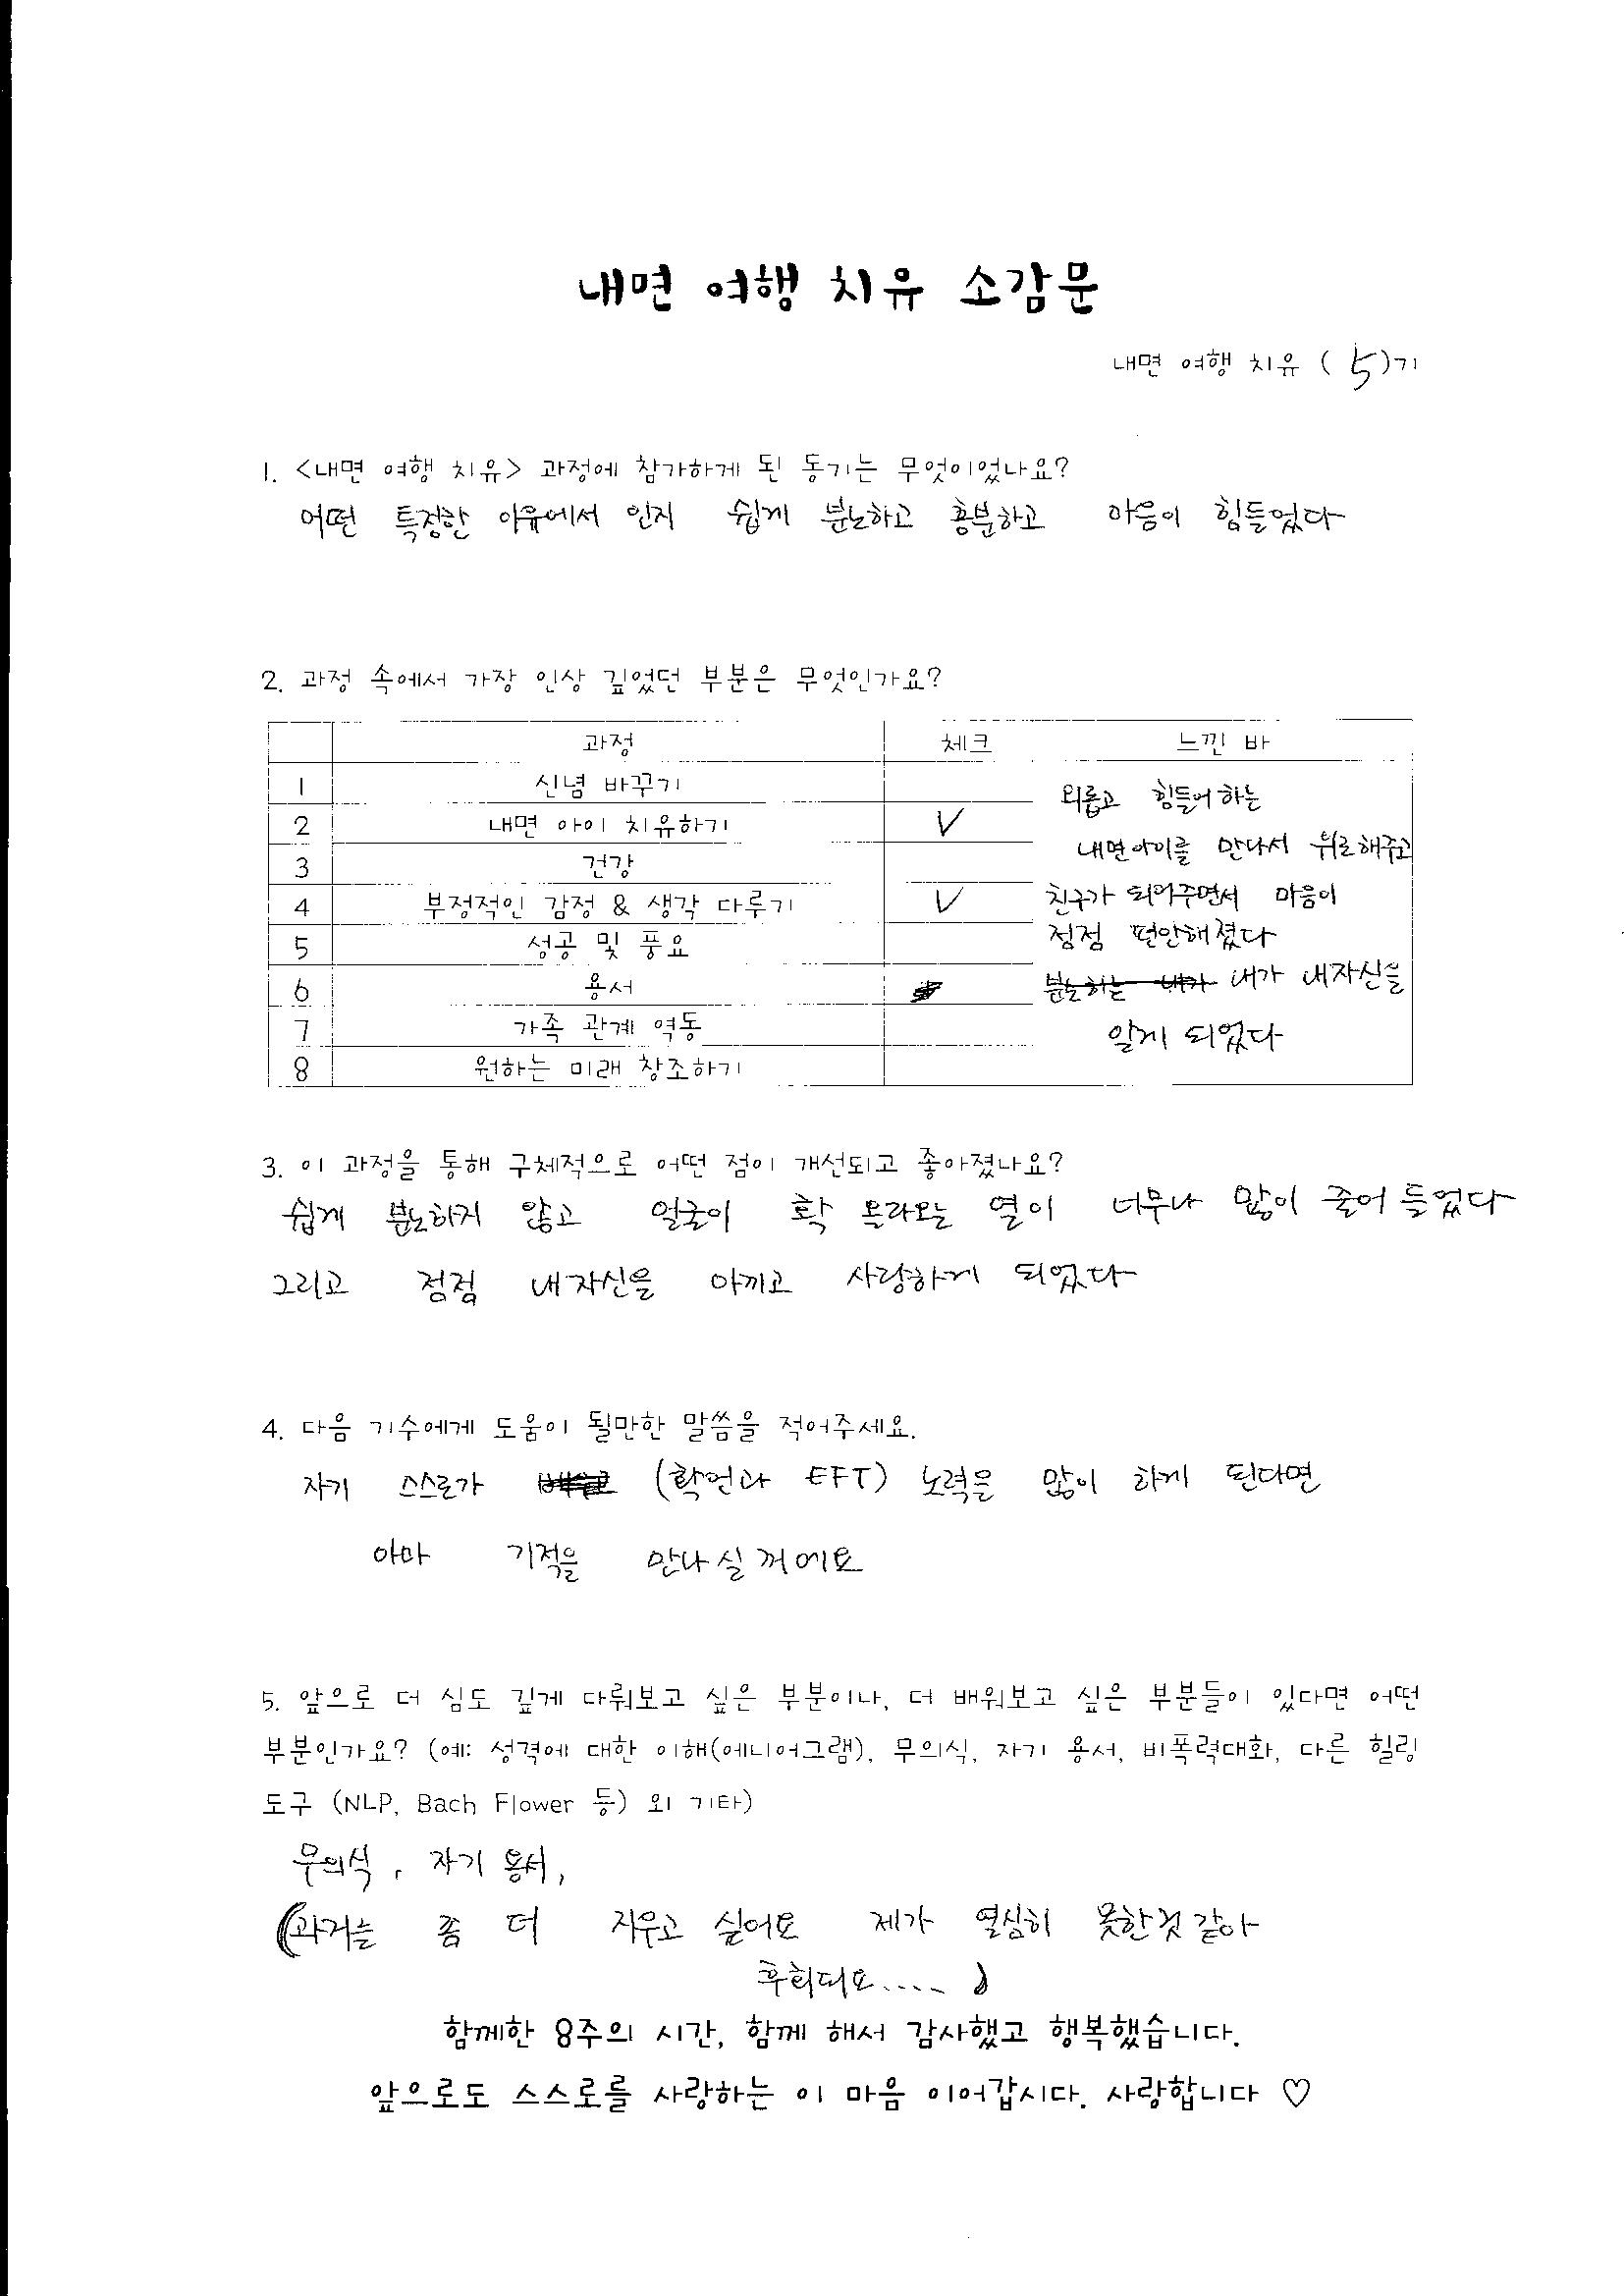 내면 여행 치유 소감문
내면 여행 치유 ( 5 )기
1. <내면 여행 치유> 과정에 참가하게 된 동기는 무엇이었나요?
어떤 특정한 이유에서 인지 쉽게 분노하고 흥분하고 마음이 힘들었다
2. 과정 속에서 가장 인상 깊었던 부분은 무엇인가요?
과정 체크 느낀 바
1 신념 바꾸기
2 내면 아이 치유하기 ✓
3 건강
4 부정적인 감정 & 생각 다루기 ✓
5 성공 및 풍요
6 용서
7 가족 관계 역동
8 원하는 미래 창조하기
외롭고 힘들어 하는
내면아이를 만나서 위로해주고
친구가 되어주면서 마음이
점점 편안해졌다
분노하는 내가 내가 내자신을
알게 되었다
3. 이 과정을 통해 구체적으로 어떤 점이 개선되고 좋아졌나요?
쉽게 분노하지 않고 얼굴이 확 올라오는 열이 너무나 많이 줄어 들었다
그리고 점점 내자신을 아끼고 사랑하게 되었다
4. 다음 기수에게 도움이 될만한 말씀을 적어주세요.
자기 스스로가 (확언과 EFT) 노력을 많이 하게 된다면
아마 기적을 만나실꺼에요
5. 앞으로 더 심도 깊게 다뤄보고 싶은 부분이나, 더 배워보고 싶은 부분들이 있다면 어떤
부분인가요? (예: 성격에 대한 이해(에니어그램), 무의식, 자기 용서, 비폭력대화, 다른 힐링
도구 (NLP, Bach Flower 등) 외 기타)
무의식, 자기 용서,
(과거는 좀 더 지우고 싶어요 제가 열심히 못한것 같아
후회되요....)
함께한 8주의 시간, 함께 해서 감사했고 행복했습니다.
앞으로도 스스로를 사랑하는 이 마음 이어갑시다. 사랑합니다 ♡